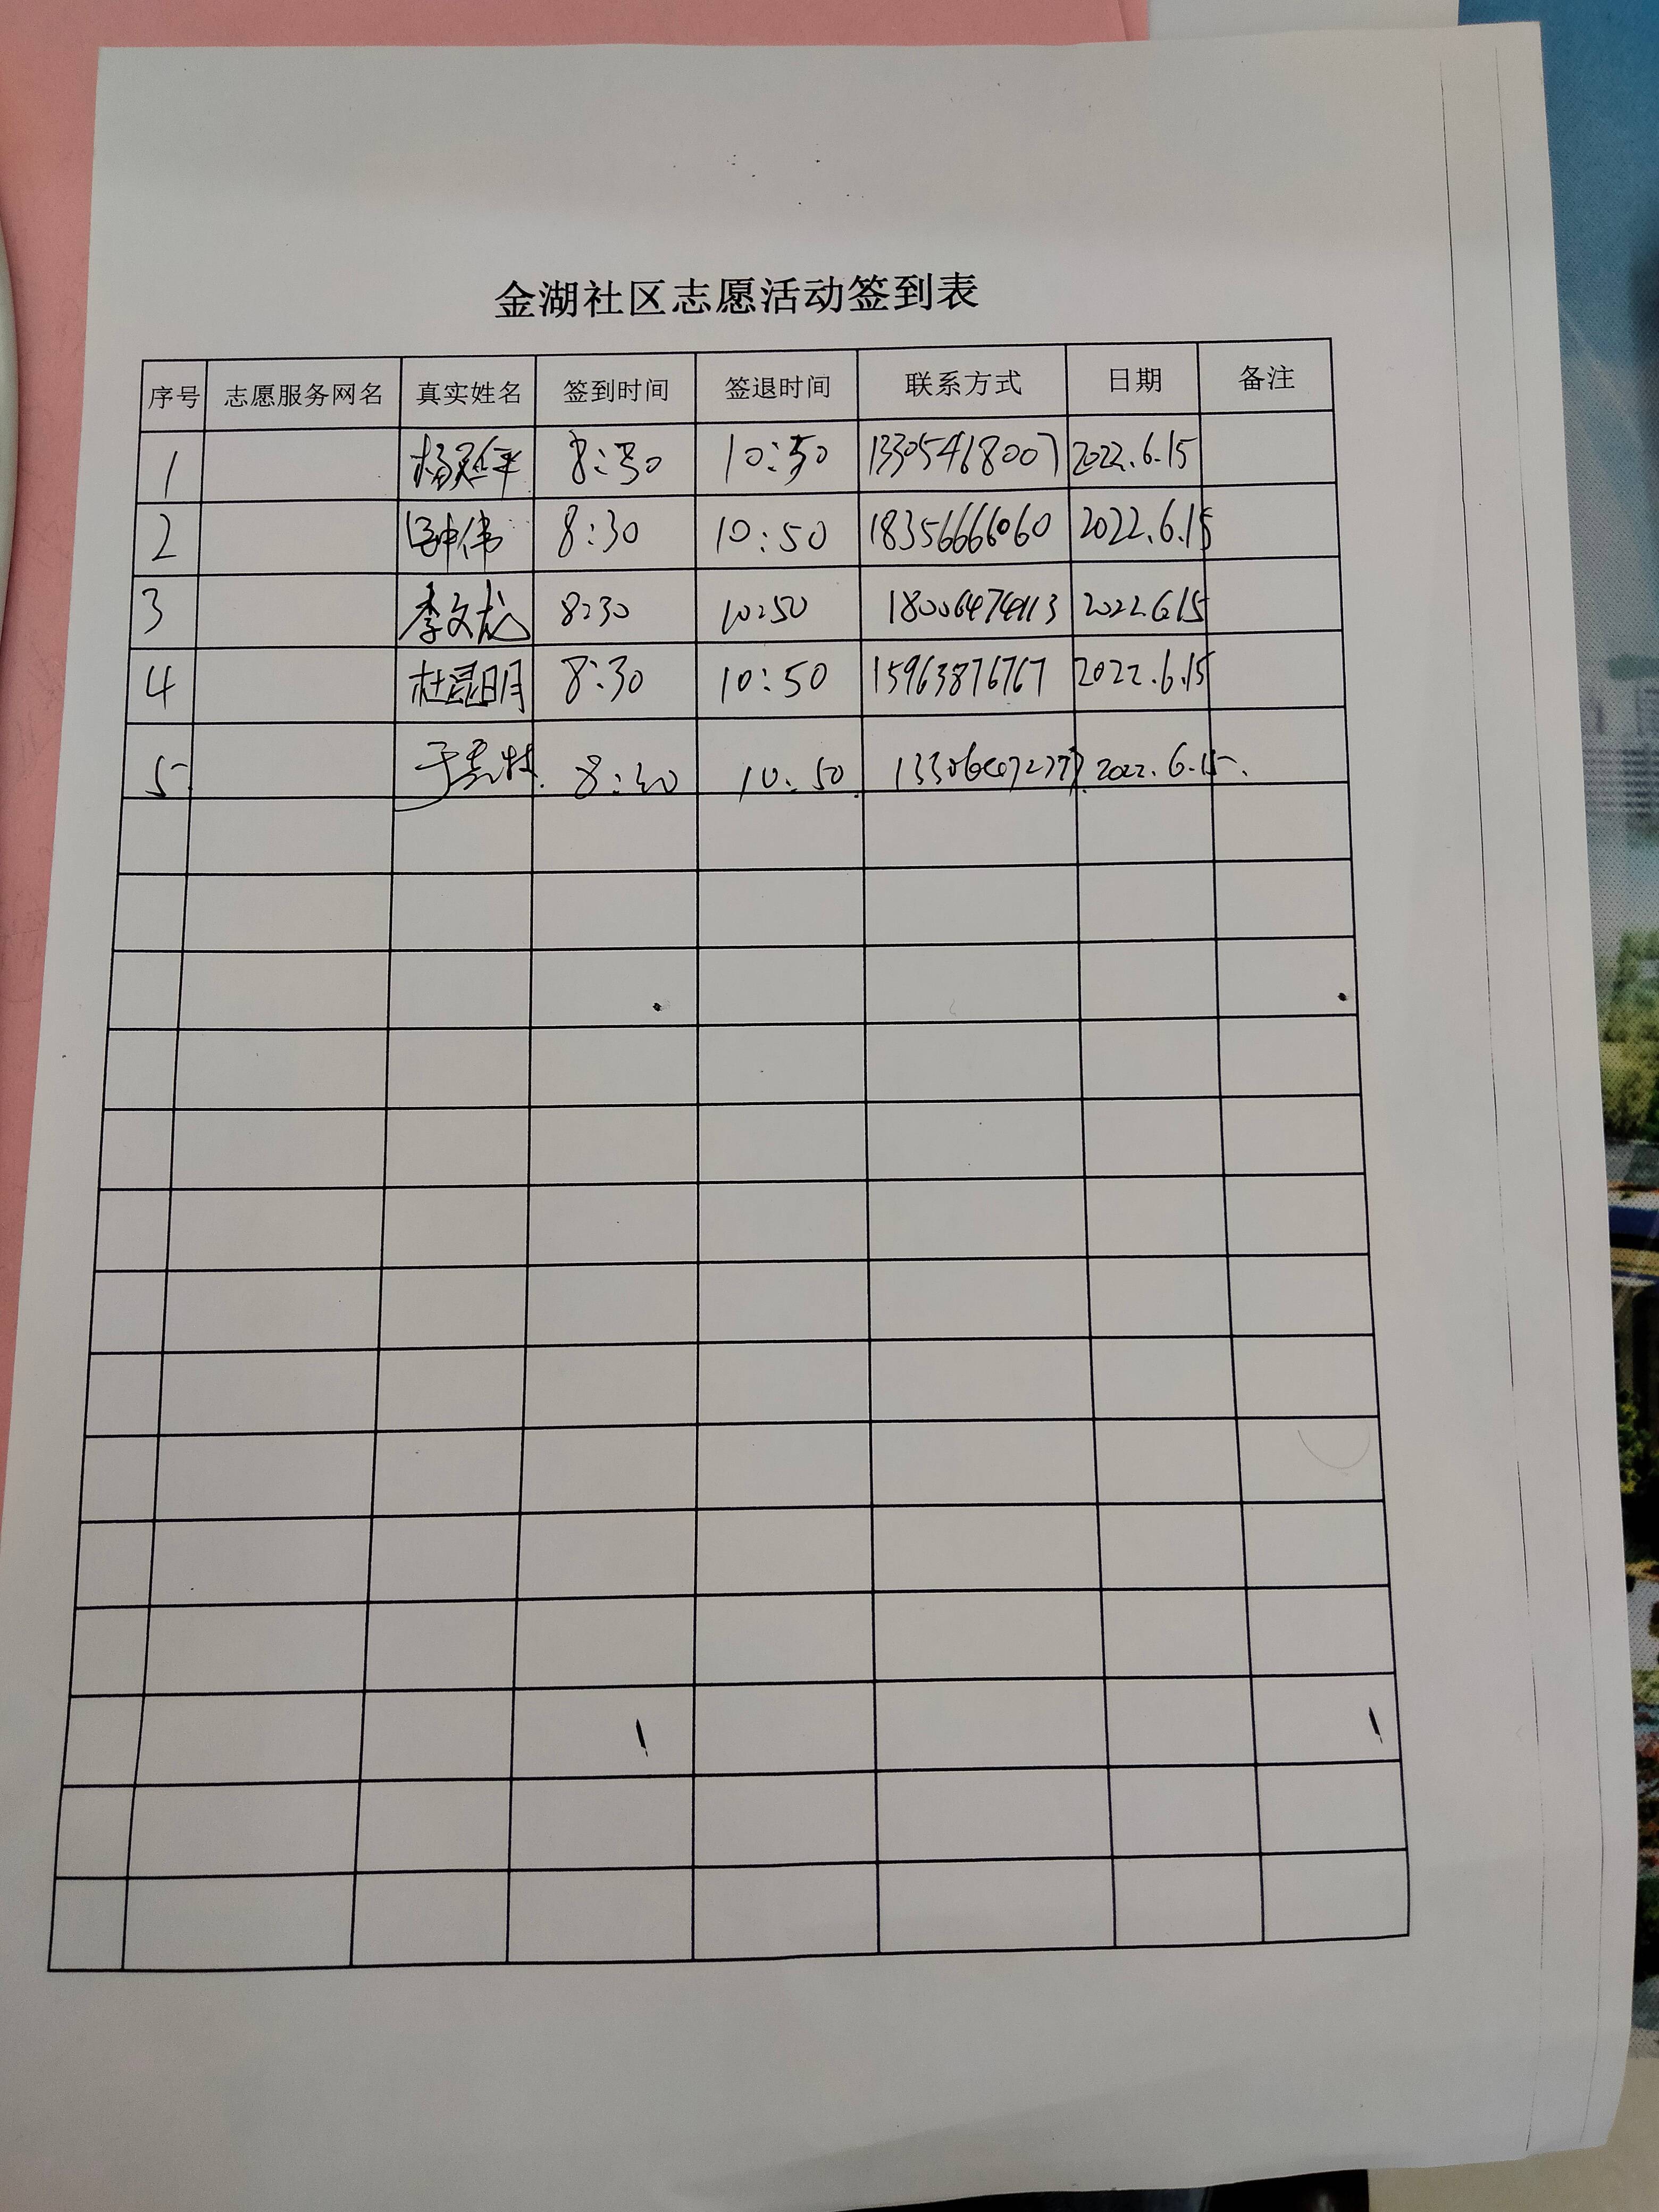 金湖社区志愿活动签到表
序号 志愿服务网名 真实姓名 签到时间 签退时间 联系方式 日期 备注
1 8:30 10:50 13305468007 2022.6.15
2 伟 8:30 10:50 18356666060 2022.6.15
3 李文龙 8:30 10:50 18006474113 2022.6.15
4 杜昆明 8:30 10:50 15963876767 2022.6.15
5 于 8:30 10:50 2022.6.15.